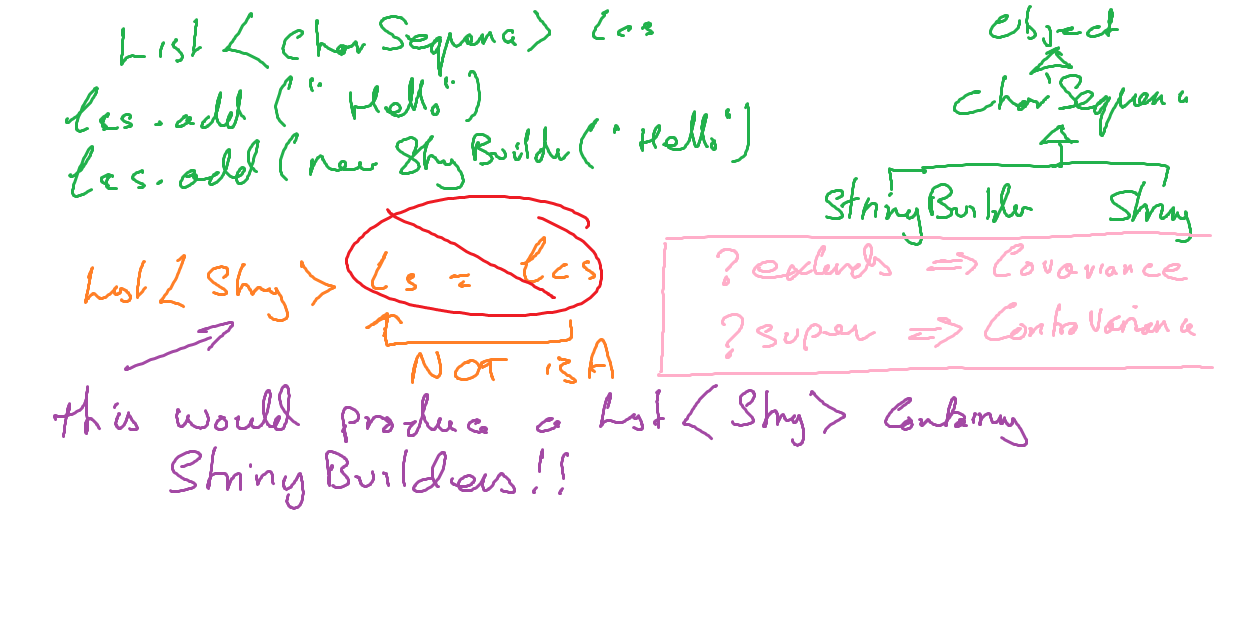 List < CharSequence > lcs
lcs.add ("Hello")
lcs.add (new StringBuilder ("Hello")
Object
CharSequence
StringBuilder String
List < String > ls = lcs
NOT isA
? extends => Covariance
? super => ContraVariance
this would produce a List < String > Containing
StringBuilders!!